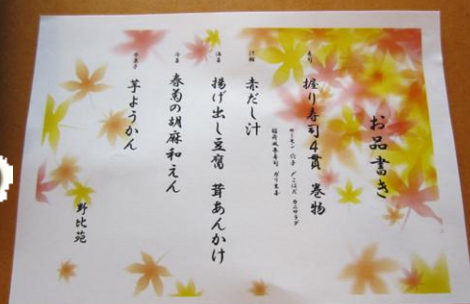 お品書き
寿司
握り寿司4貫 巻物
汁物
赤だし汁
温菜
揚げ出し豆腐 茸あんかけ
冷菜
春菊の胡麻和えん
水菓子
芋ようかん
野比苑